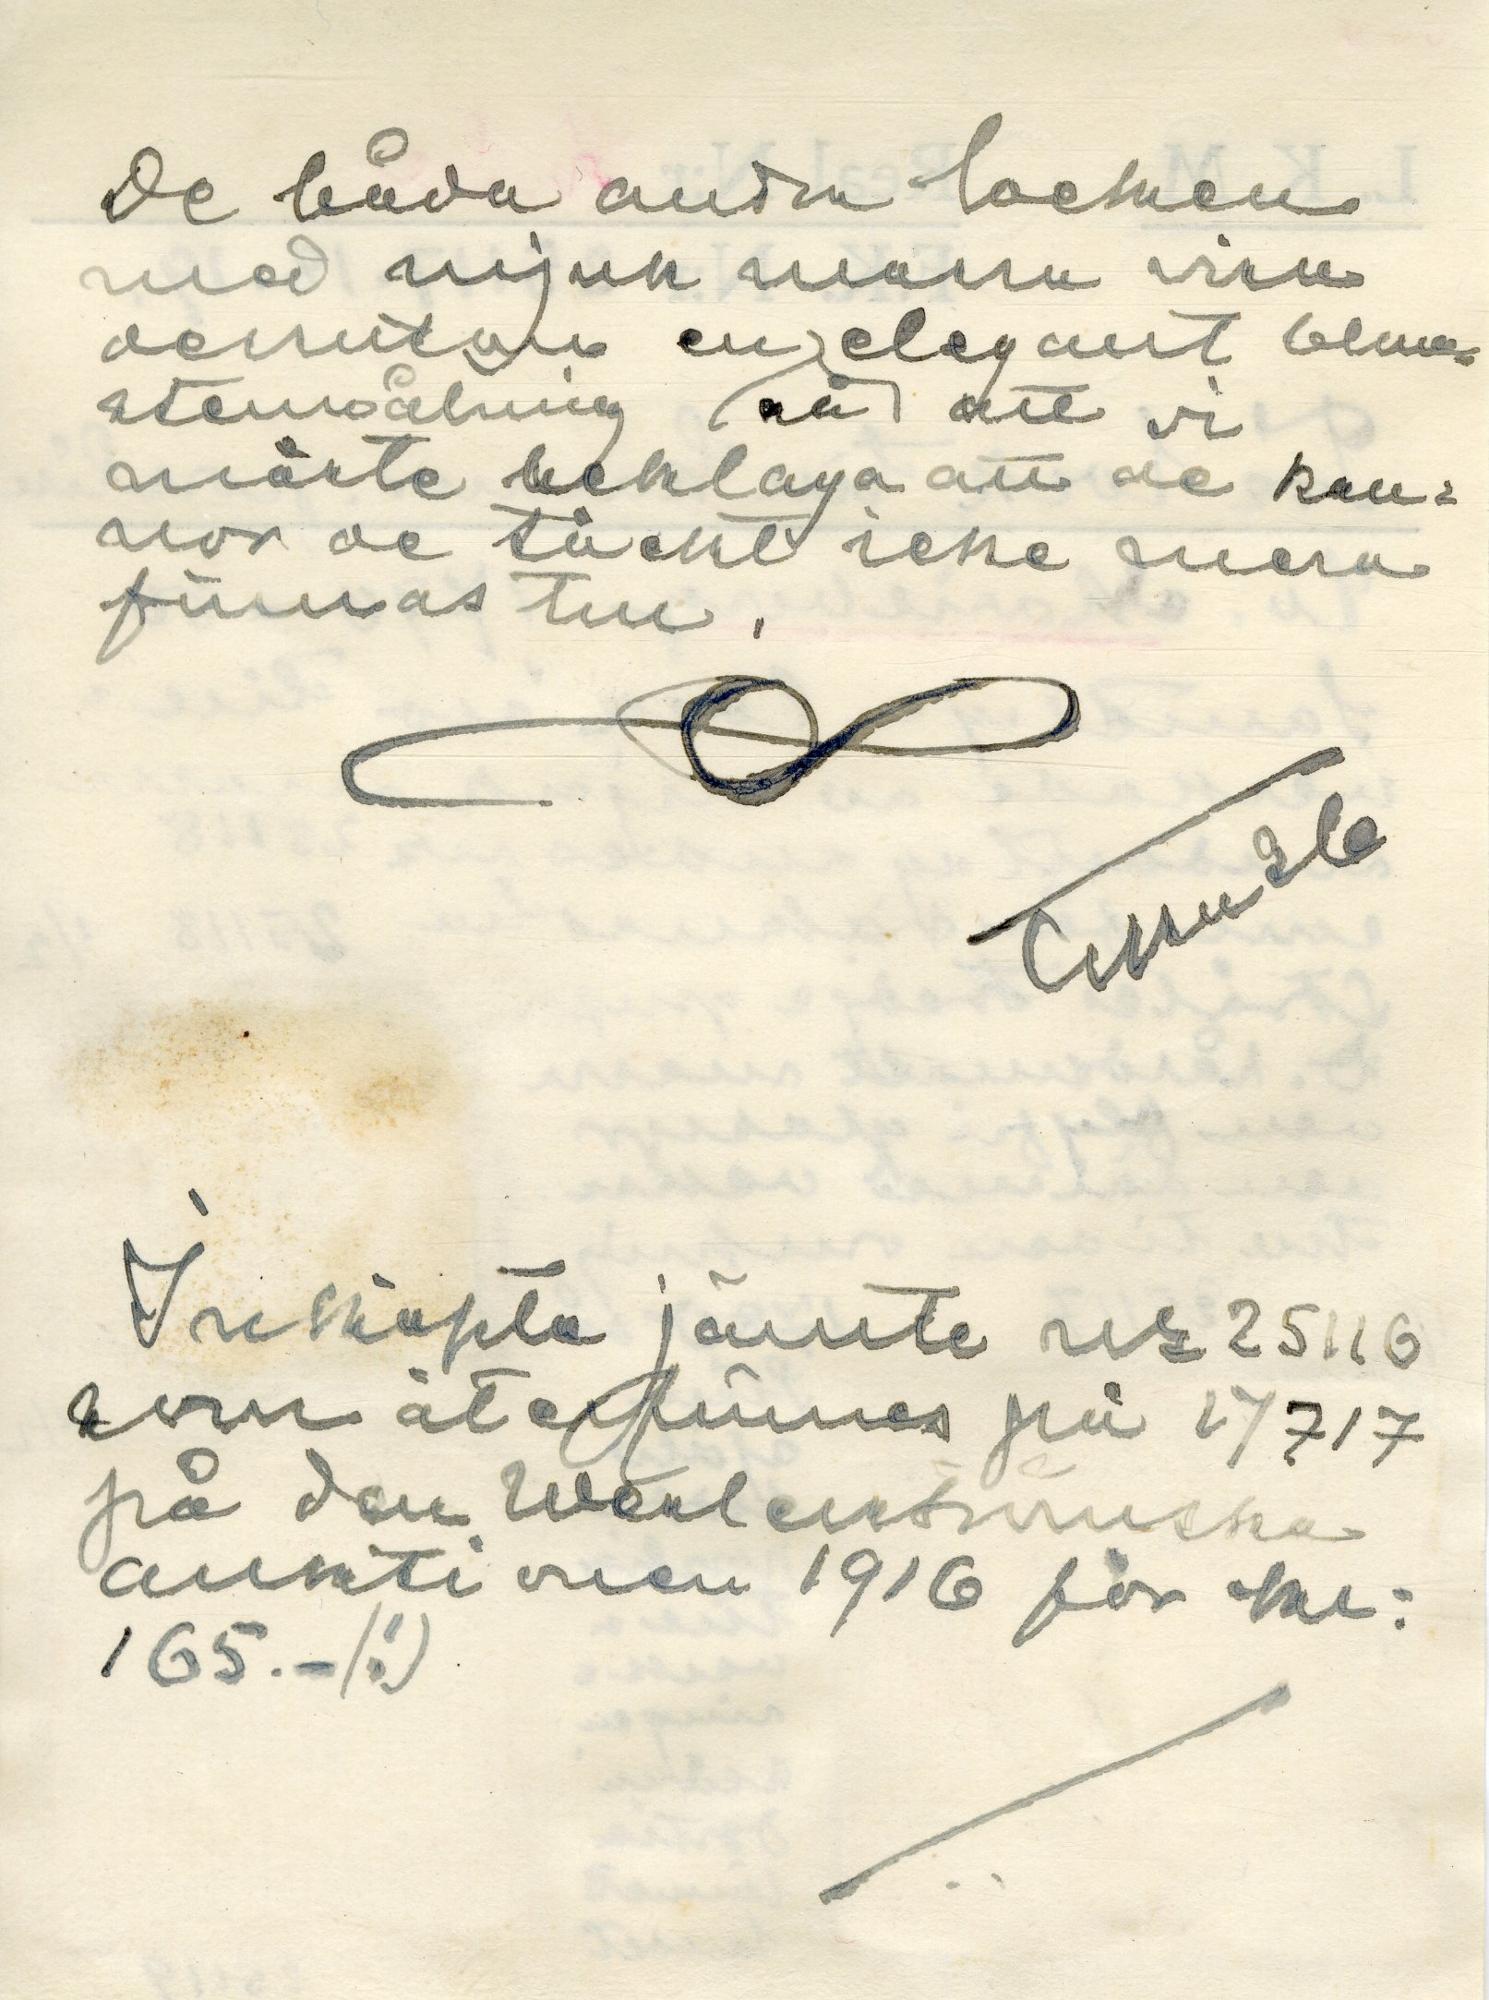 De båda andra locken
med mjuk massa visa
dessutom en elegant blom=
stermålning så att vi
måste beklaga att de kan=
nor de täckt icke mera
finnas till.
Inköpta jämte nr 25116
som återfinnes på 17717
på den Wedlenströmska
auktionen 1916 för kr:
165.-(!)